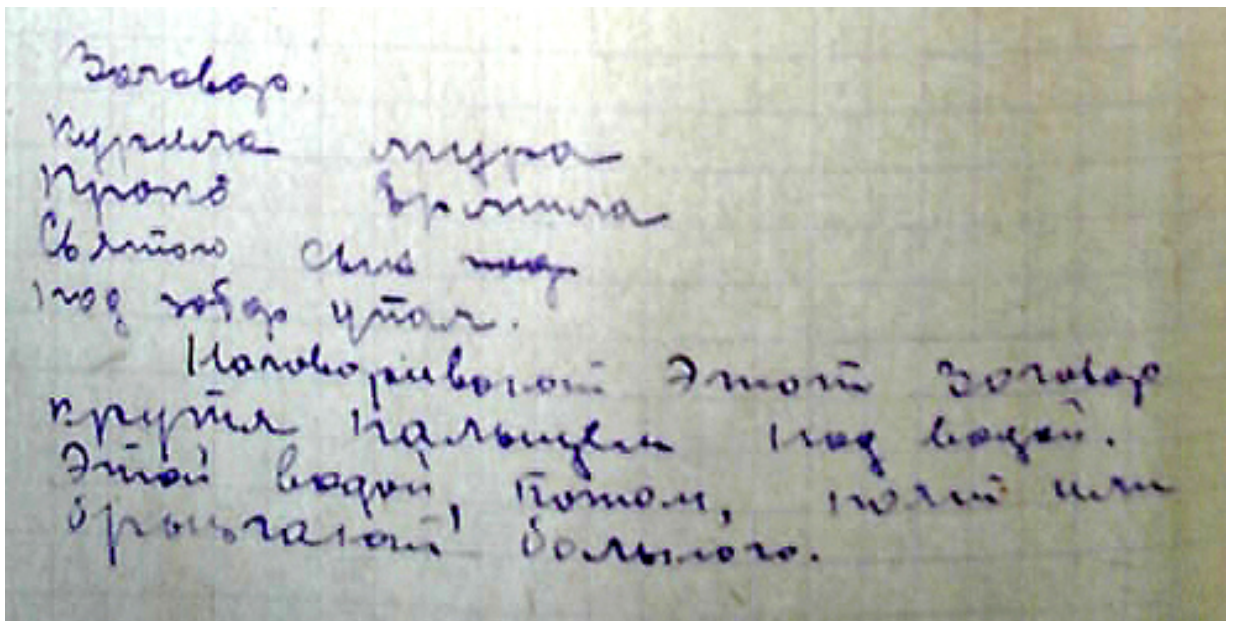 Заговор.
Курила мура
Кропо Ермила
Святого сына
под забор упал.
Наговаривают этот заговор
крутя пальцем над водой.
Этой водой, потом, поят или
брызгают больного.